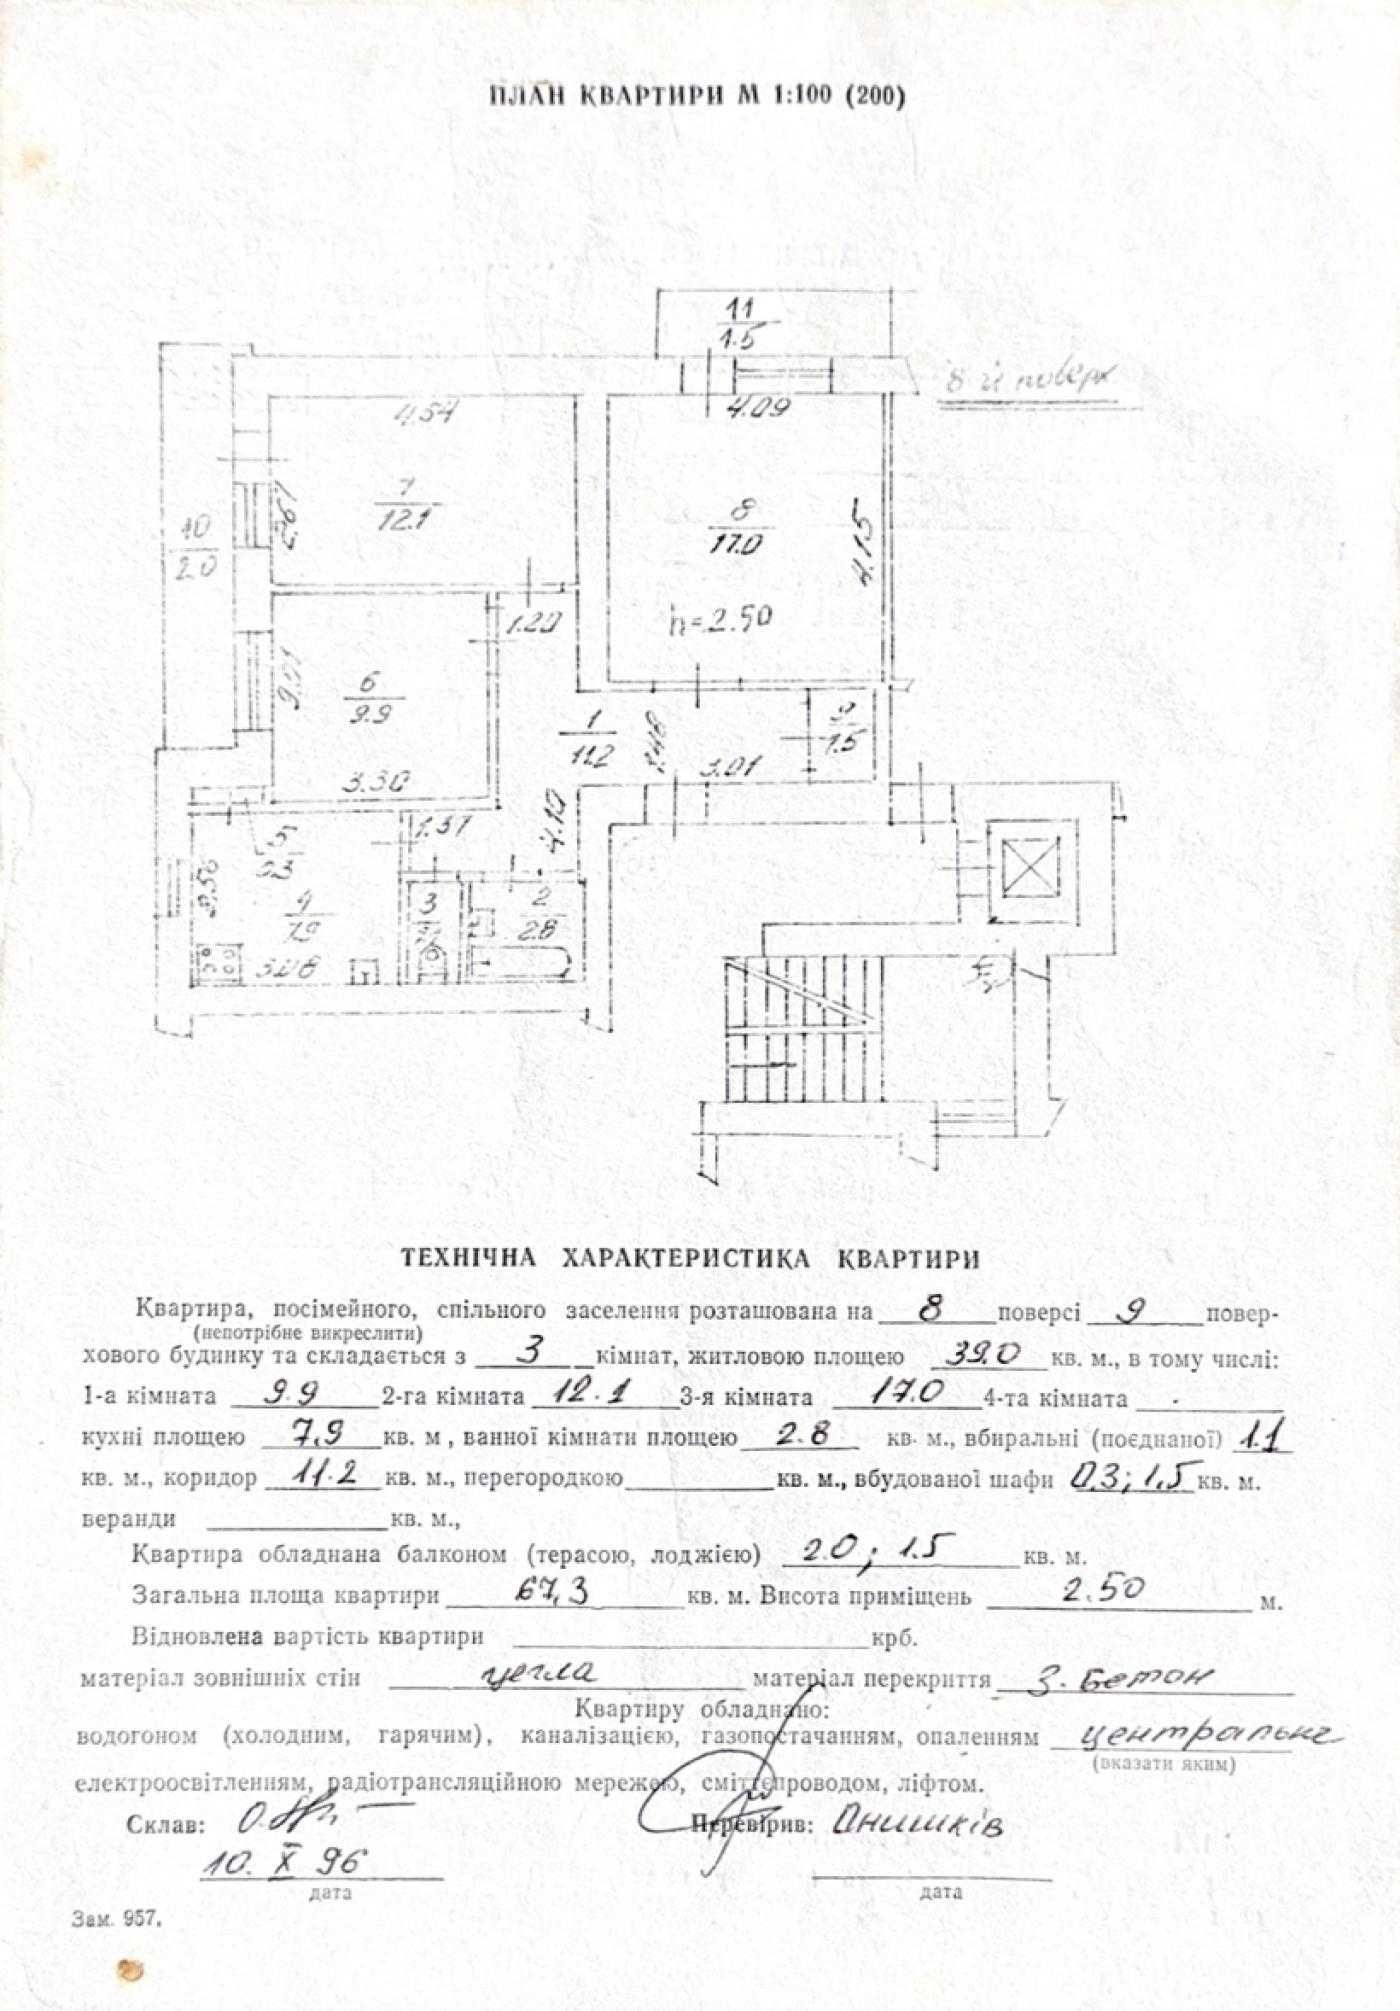 ПЛАН КВАРТИРИ М 1:100 (200)
11
1.5
8 й поверх
4.54
4.09
7
12.1
2.61
8
17.0
4.15
10
2.0
h=2.50
1.20
6
9.9
3.30
1
11.2
1.48
3.01
9
1.5
1.37
4.10
5
0.3
2.56
4
7.9
3.08
3
2
2.8
ТЕХНІЧНА ХАРАКТЕРИСТИКА КВАРТИРИ
Квартира, посімейного, спільного заселення розташована на 8 поверсі 9 повер-
(непотрібне викреслити)
хового будинку та складається з 3 кімнат, житловою площею 39.0 кв. м., в тому числі:
1-а кімната 9.9 2-га кімната 12.1 3-я кімната 17.0 4-та кімната
кухні площею 7,9 кв. м , ванної кімнати площею 2.8 кв. м., вбиральні (поєднаної) 1.1
кв. м., коридор 11.2 кв. м., перегородкою кв. м., вбудованої шафи 0,3; 1,5 кв. м.
веранди кв. м.,
Квартира обладнана балконом (терасою, лоджією) 2.0; 1.5 кв. м.
Загальна площа квартири 67,3 кв. м. Висота приміщень 2.50 м.
Відновлена вартість квартири крб.
матеріал зовнішніх стін цегла матеріал перекриття З. бетон
Квартиру обладнано:
водогоном (холодним, гарячим), каналізацією, газопостачанням, опаленням центральне
(вказати яким)
електроосвітленням, радіотрансляційною мережею, сміттєпроводом, ліфтом.
Склав: Перевірив: Онишків
10. X 96
дата дата
Зам. 957.